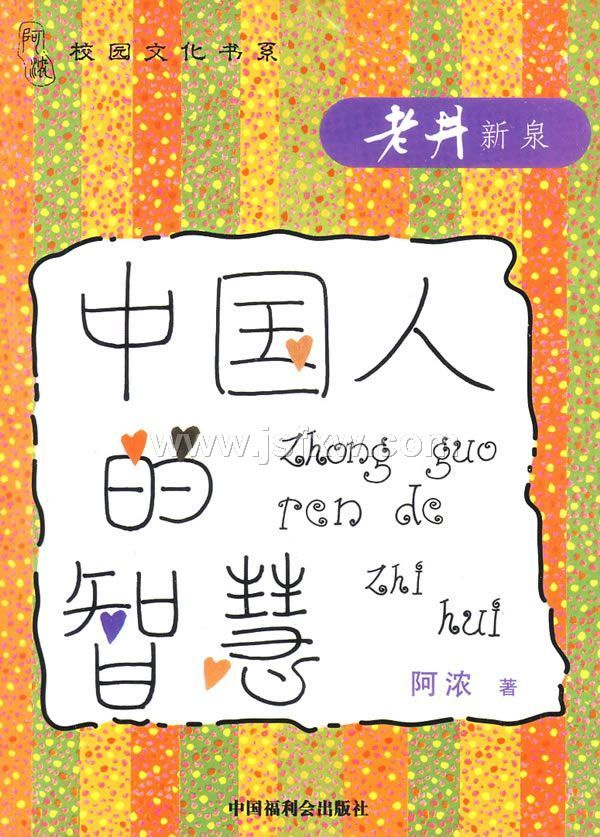 阿浓
校园文化书系
老井新泉
中国人
的
zhong guo
ren de
智慧
zhi
hui
阿浓 著
www.jsfxw.com
中国福利会出版社